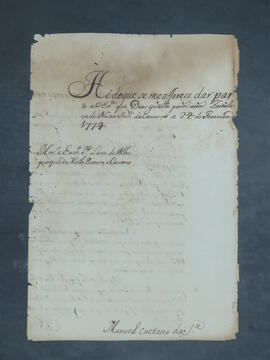 He o que se me offerece dar par
te a V Exª que Deos guarde por m. annos Fortale
za de Nossa Srª da Conceicaõ a 24 de Fevereiro
1774
Illmº e Exmº Sr Luis de Albu
querque de Mello Pereira e Caceres
Manoel Caetano